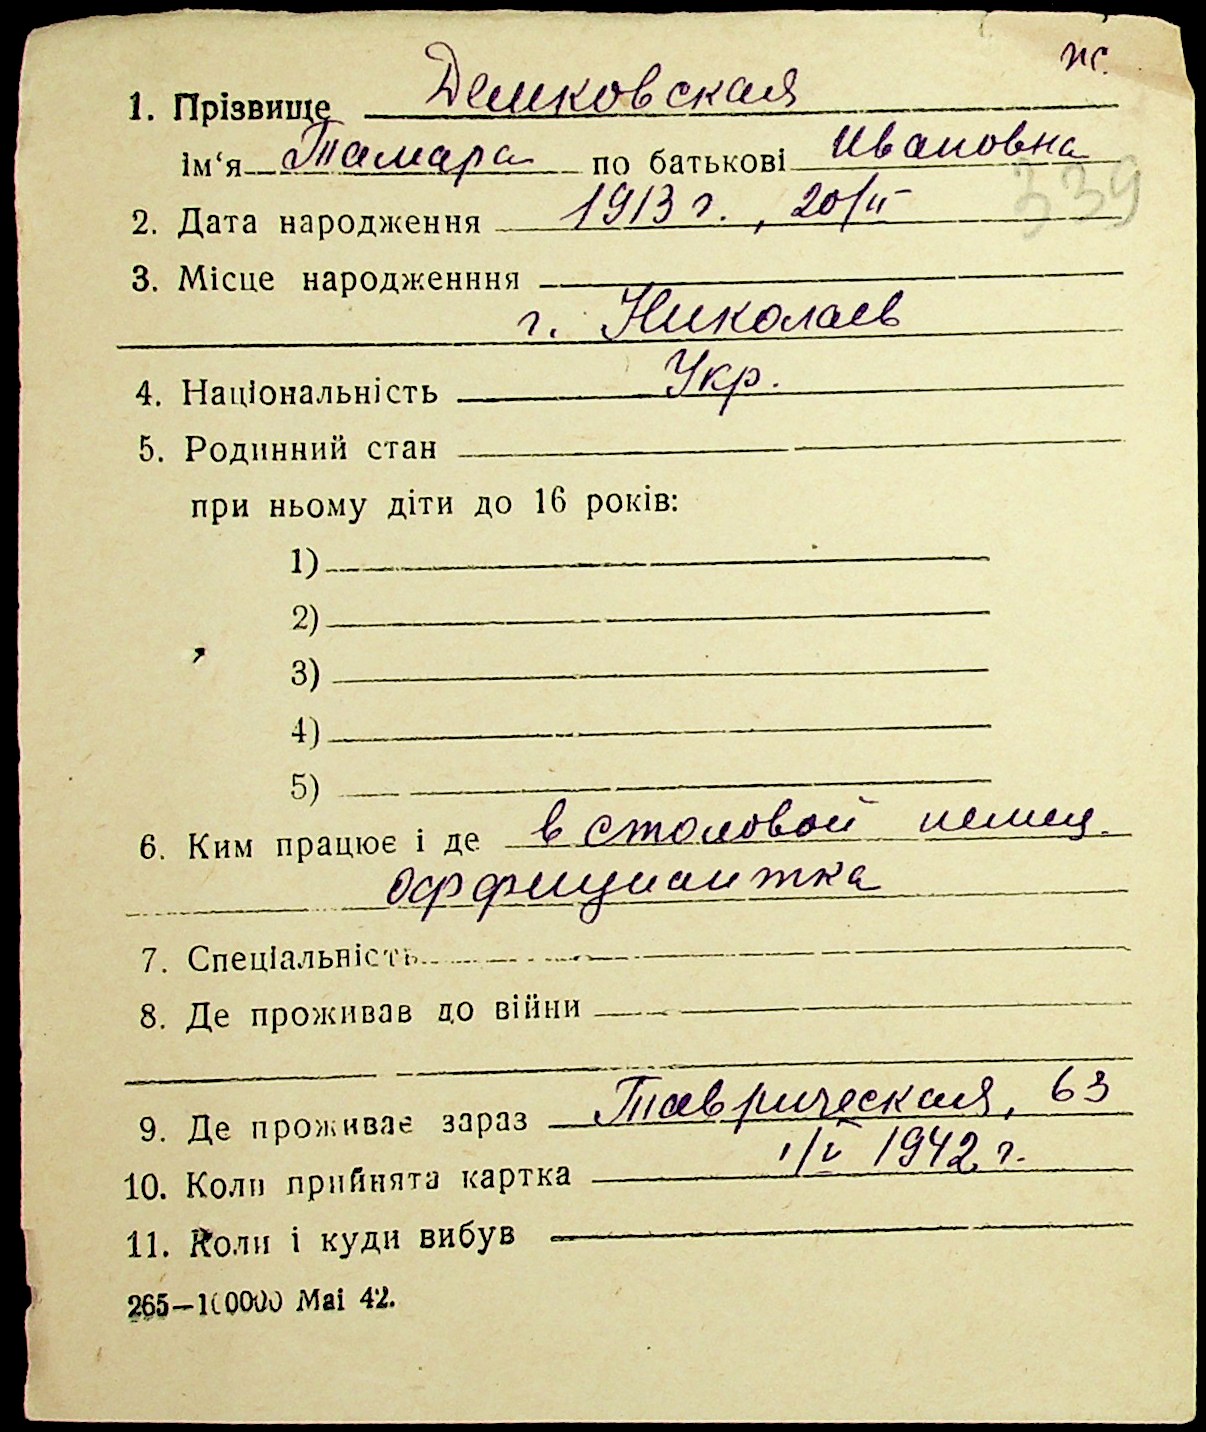 ж.
1. Прізвище Демковская
ім‘я Тамара по батькові Ивановна
339
2. Дата народження 1913 г., 20/II
3. Місце народженння
г. Николаев
4. Національність Укр.
5. Родинний стан
при ньому діти до 16 років:
1)
2)
3)
4)
5)
6. Ким працює і де в столовой немец.
оффициантка
7. Спеціальність
8. Де проживав до війни
9. Де проживає зараз Таврическая, 63
10. Коли прийнята картка 1942 г.
11. Коли і куди вибув
265—100000 Маі 42.